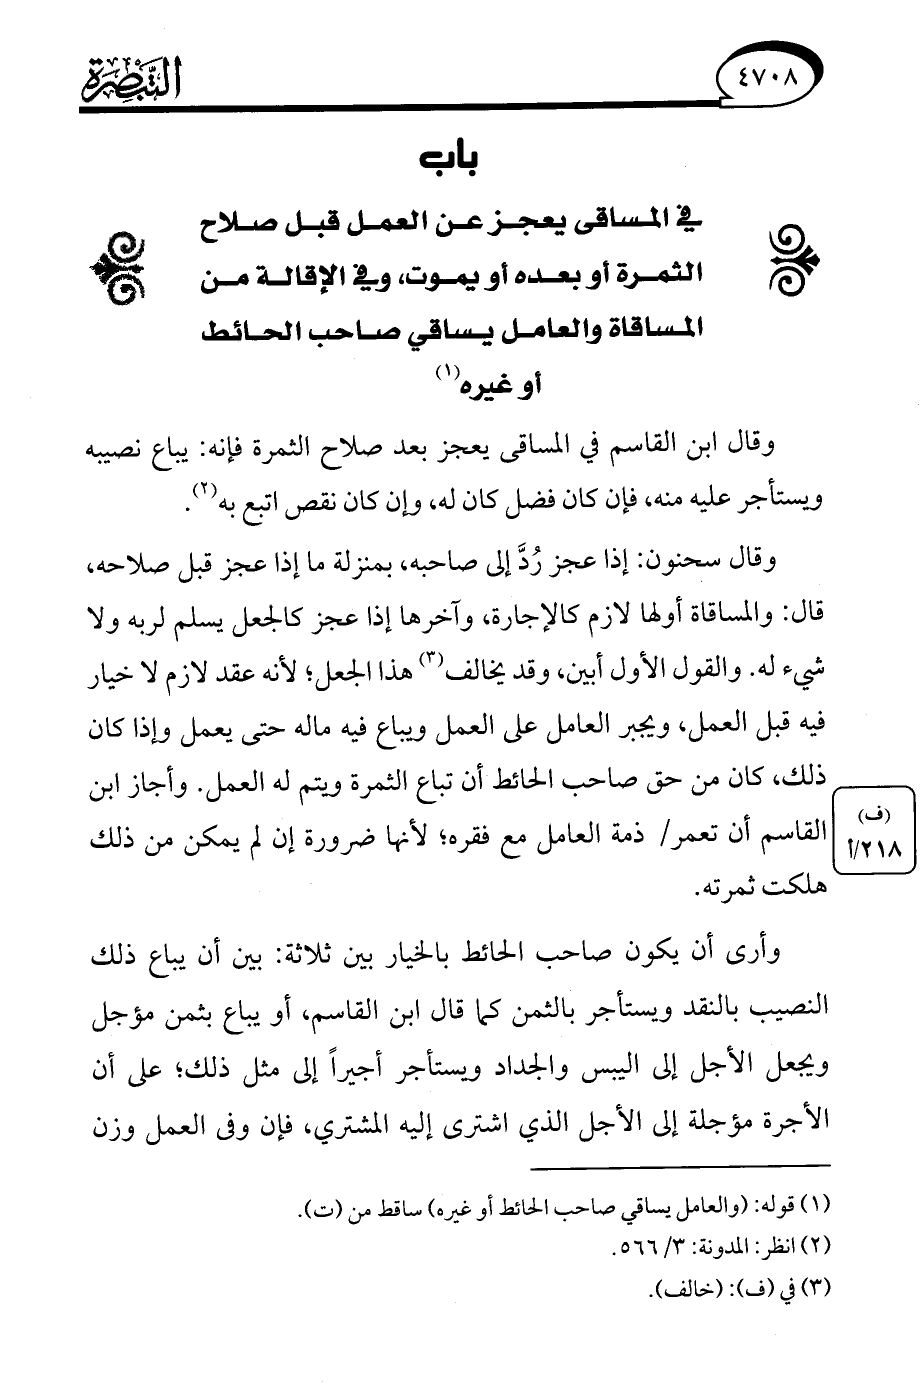 ٤٧٠٨
التبصرة
باب
في المساقى يعجز عن العمل قبل صلاح
الثمرة أو بعده أو يموت، وفي الإقالة من
المساقاة والعامل يساقي صاحب الحائط
أو غيره(١)
وقال ابن القاسم في المساقى يعجز بعد صلاح الثمرة فإنه: يباع نصيبه
ويستأجر عليه منه، فإن كان فضل كان له، وإن كان نقص اتبع به(٢).
وقال سحنون: إذا عجز رُدَّ إلى صاحبه، بمنزلة ما إذا عجز قبل صلاحه،
قال: والمساقاة أولها لازم كالإجارة، وآخرها إذا عجز كالجعل يسلم لربه ولا
شيء له. والقول الأول أبين، وقد يخالف(٣) هذا الجعل؛ لأنه عقد لازم لا خيار
فيه قبل العمل، ويجبر العامل على العمل ويباع فيه ماله حتى يعمل وإذا كان
ذلك، كان من حق صاحب الحائط أن تباع الثمرة ويتم له العمل. وأجاز ابن
القاسم أن تعمر/ ذمة العامل مع فقره؛ لأنها ضرورة إن لم يمكن من ذلك
هلكت ثمرته.
(ف)
٢١٨/أ
وأرى أن يكون صاحب الحائط بالخيار بين ثلاثة: بين أن يباع ذلك
النصيب بالنقد ويستأجر بالثمن كما قال ابن القاسم، أو يباع بثمن مؤجل
ويجعل الأجل إلى اليبس والجداد ويستأجر أجيراً إلى مثل ذلك؛ على أن
الأجرة مؤجلة إلى الأجل الذي اشترى إليه المشتري، فإن وفى العمل وزن
(١) قوله: (والعامل يساقي صاحب الحائط أو غيره) ساقط من (ت).
(٢) انظر: المدونة: ٣/ ٥٦٦.
(٣) في (ف): (خالف).